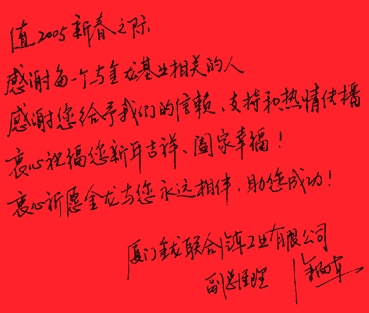 值2005新春之际
感谢每一个与金龙基业相关的人
感谢您给予我们的信赖、支持和热情传播
衷心祝福您新年吉祥、阖家幸福!
衷心祈愿金龙与您永远相伴,助您成功!
厦门金龙联合汽车工业有限公司
副总经理